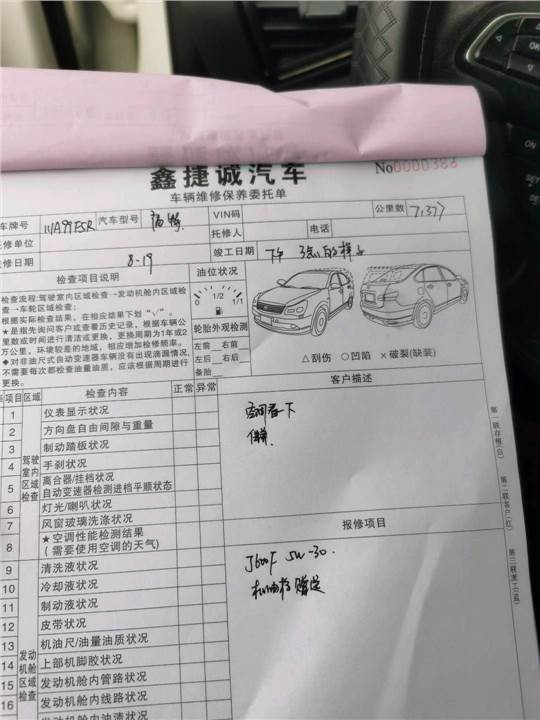 鑫捷诚汽车
No0000386
车辆维修保养委托单
车牌号 汽车型号 VIN码 公里数
托修单位 托修人 电话
修日期 8-19 竣工日期
检查项目说明 油位状况
检查流程:驾驶室内区域检查→发动机舱内区域检
查→车轮区域检查;
根据实际检查结果, 在相应结果下划"√"。
★是指先询问客户或查看历史记录, 根据车辆公
里数或时间进行清洁或更换, 更换周期为1年或2
万公里, 环境较差的地域, 相应增加检修频率。
◆对非油尺式自动变速器车辆没有出现滴漏情况,
不需要每次都检查油量油质, 应该根据周期进行
更换。
0 1/2 1/1
轮胎外观检测
左前 右前
左后 右后
备胎
△刮伤 ○凹陷 ×破裂(缺装)
项目 区域 检查内容 正常 异常
客户描述
驾驶室内区域检查
1 仪表显示状况
2 方向盘自由间隙与重量
3 制动踏板状况
4 手刹状况
5 离合器/挂档状况
自动变速器检测进档平顺状态
6 灯光/喇叭状况
7 风窗玻璃洗涤状况
8 ★空调性能检测结果
(需要使用空调的天气)
报修项目
发动机舱区域检查
9 清洗液状况
10 冷却液状况
11 制动液状况
12 皮带状况
13 机油尺/油量油质状况
14 上部机脚胶状况
15 发动机舱内管路状况
16 发动机舱内线路状况
发动机舱内油渍状况
5W-30.
赠送
第一联存根(白)
第二联客户(红)